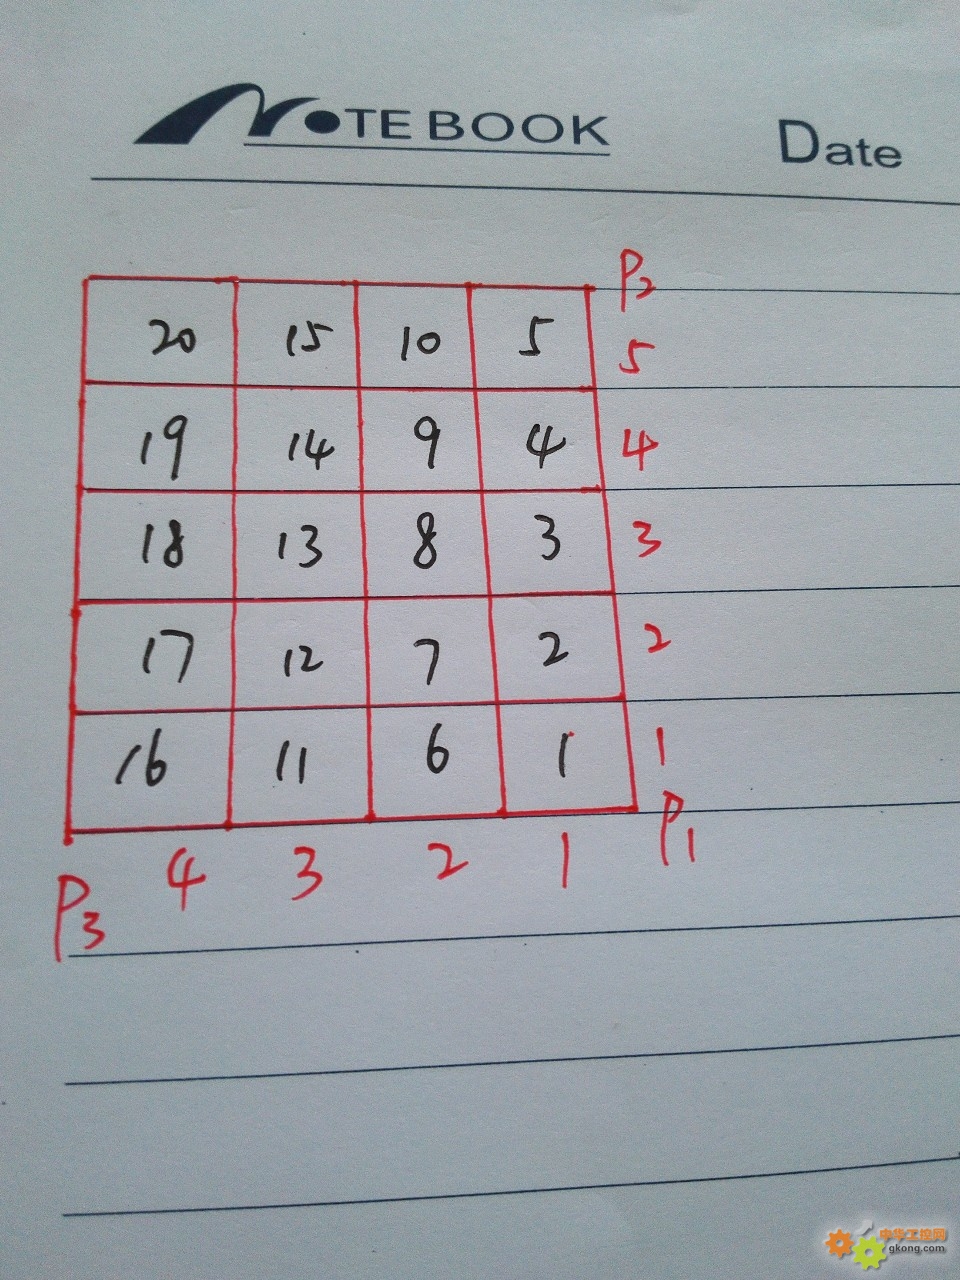 NOTEBOOK Date
P2
20 15 10 5 5
19 14 9 4 4
18 13 8 3 3
17 12 7 2 2
16 11 6 1 1
P3 4 3 2 1 P1
中华工控网
gkong.com